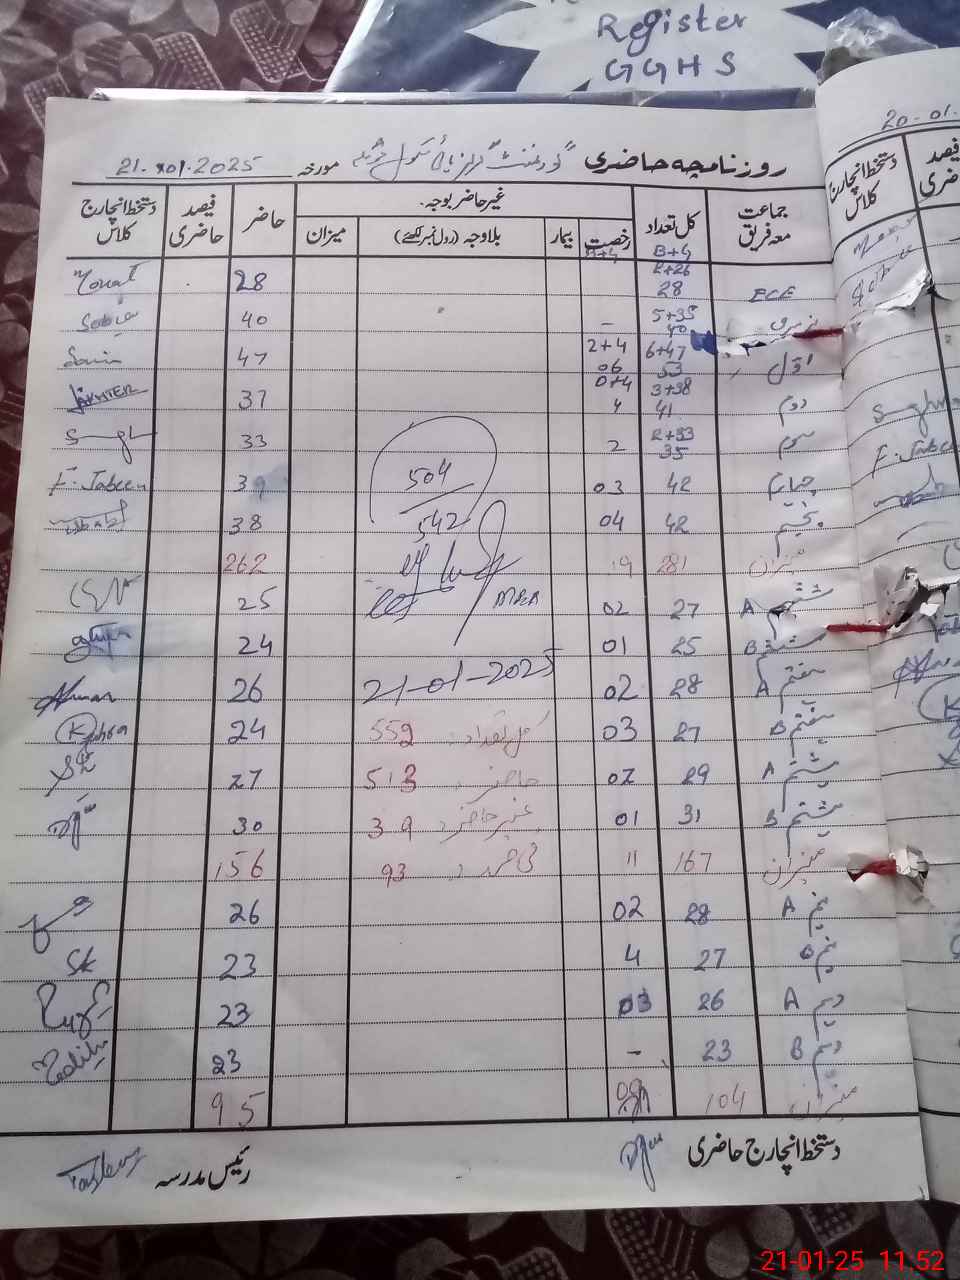 Register
GGHS
20-01.
فیصد حاضری
دستخط انچارج کلاس
روزنامچہ حاضری گورنمنٹ گرلز ہائی سکول مورخہ 21-01-2025
جماعت معہ فریق کل تعداد غیر حاضر بوجہ۔ حاضر فیصد حاضری دستخط انچارج کلاس
رخصت بیمار بلاوجہ (رول نمبر لکھئے) میزان
B+G B+G
ECE 2+26 28 28
5+35 40 - 40
اول 6+47 53 2+4 06 47
دوم 3+38 41 0+4 4 37
سوم 2+33 35 2 33
چہارم 42 03 39 F. Jabeen
پنجم 42 04 38
504
542
میزان 281 19 262
ششم A 27 02 25
MEA
ششم B 25 01 24
ہفتم A 28 02 21-01-2025 26
ہفتم B 27 03 کل تعداد: 552 24
ہشتم A 29 02 حاضر: 513 27
ہشتم B 31 01 غیر حاضر: 39 30
میزان 167 11 فی صد: 93 156
نہم A 28 02 26
نہم B 27 4 23 SK
دہم A 26 03 23
دہم B 23 - 23
میزان 104 95
دستخط انچارج حاضری رئیس مدرسہ
F. Jabeen
21-01-25 11:52